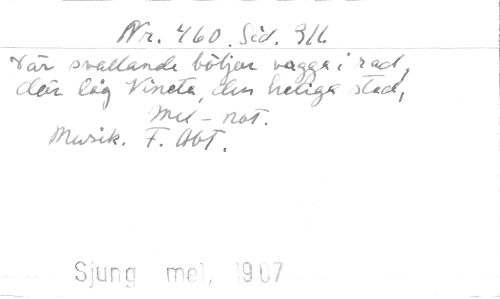 Nr. 460. Sid. 311.
Där svallande böljor vagga i rad,
där låg Vineta, den heliga stad,
Mel-not.
Musik. F. Abt.
Sjung mel, 1907